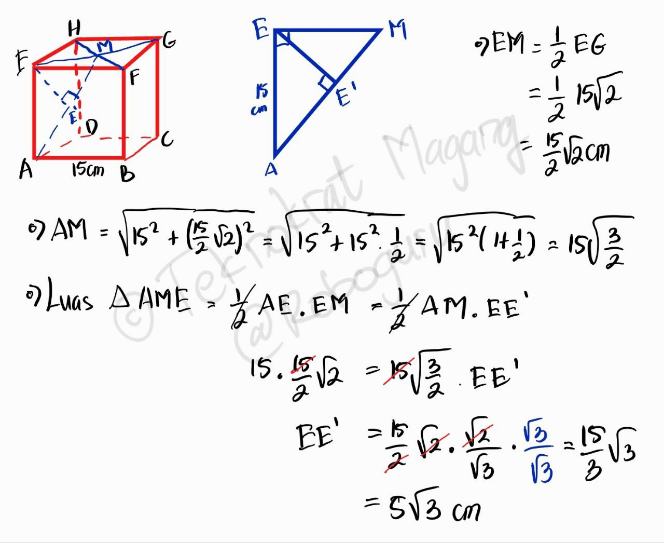 H
G
M
E
F
E'
D
C
A
15cm
B
E
M
15
cm
E'
A
•) EM = 1/2 EG
= 1/2 15√2
= 15/2 √2 cm
•) AM = √(15² + (15/2 √2)²) = √(15² + 15² · 1/2) = √(15² (1 + 1/2)) = 15√(3/2)
•) Luas △ AME = 1/2 AE . EM = 1/2 AM . EE'
15 . 15/2 √2 = 15√(3/2) . EE'
EE' = 15/2 √2 . √2/√3 . √3/√3 = 15/3 √3
= 5√3 cm
© Teknokrat Magang
@Roboguru